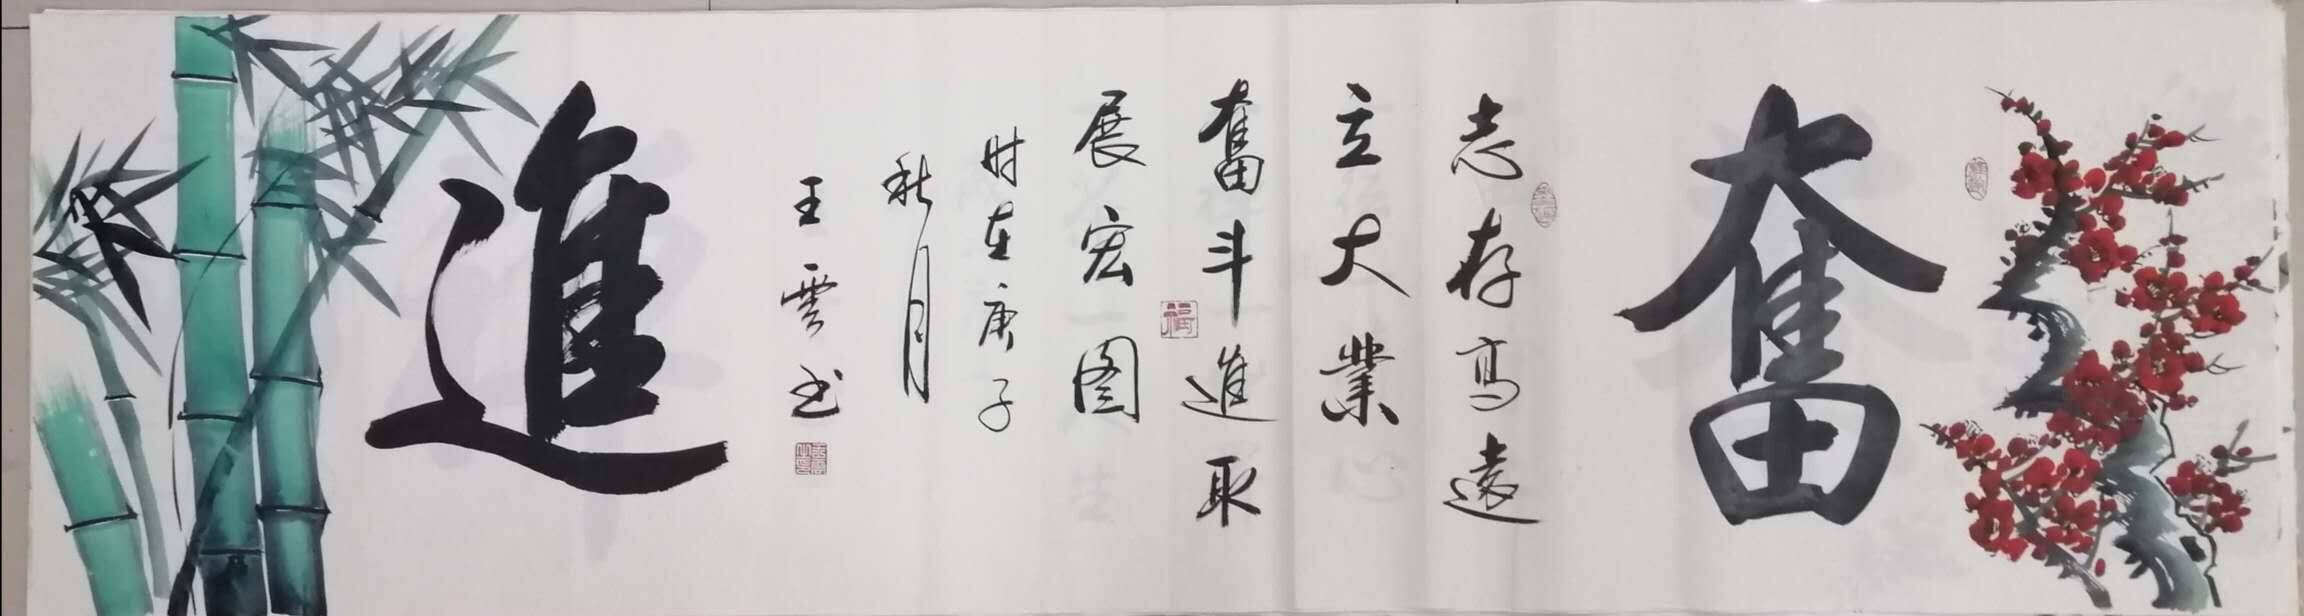 奮
志存高遠
立大業
奮斗進取
展宏图
时在庚子
秋月
王雲书
進